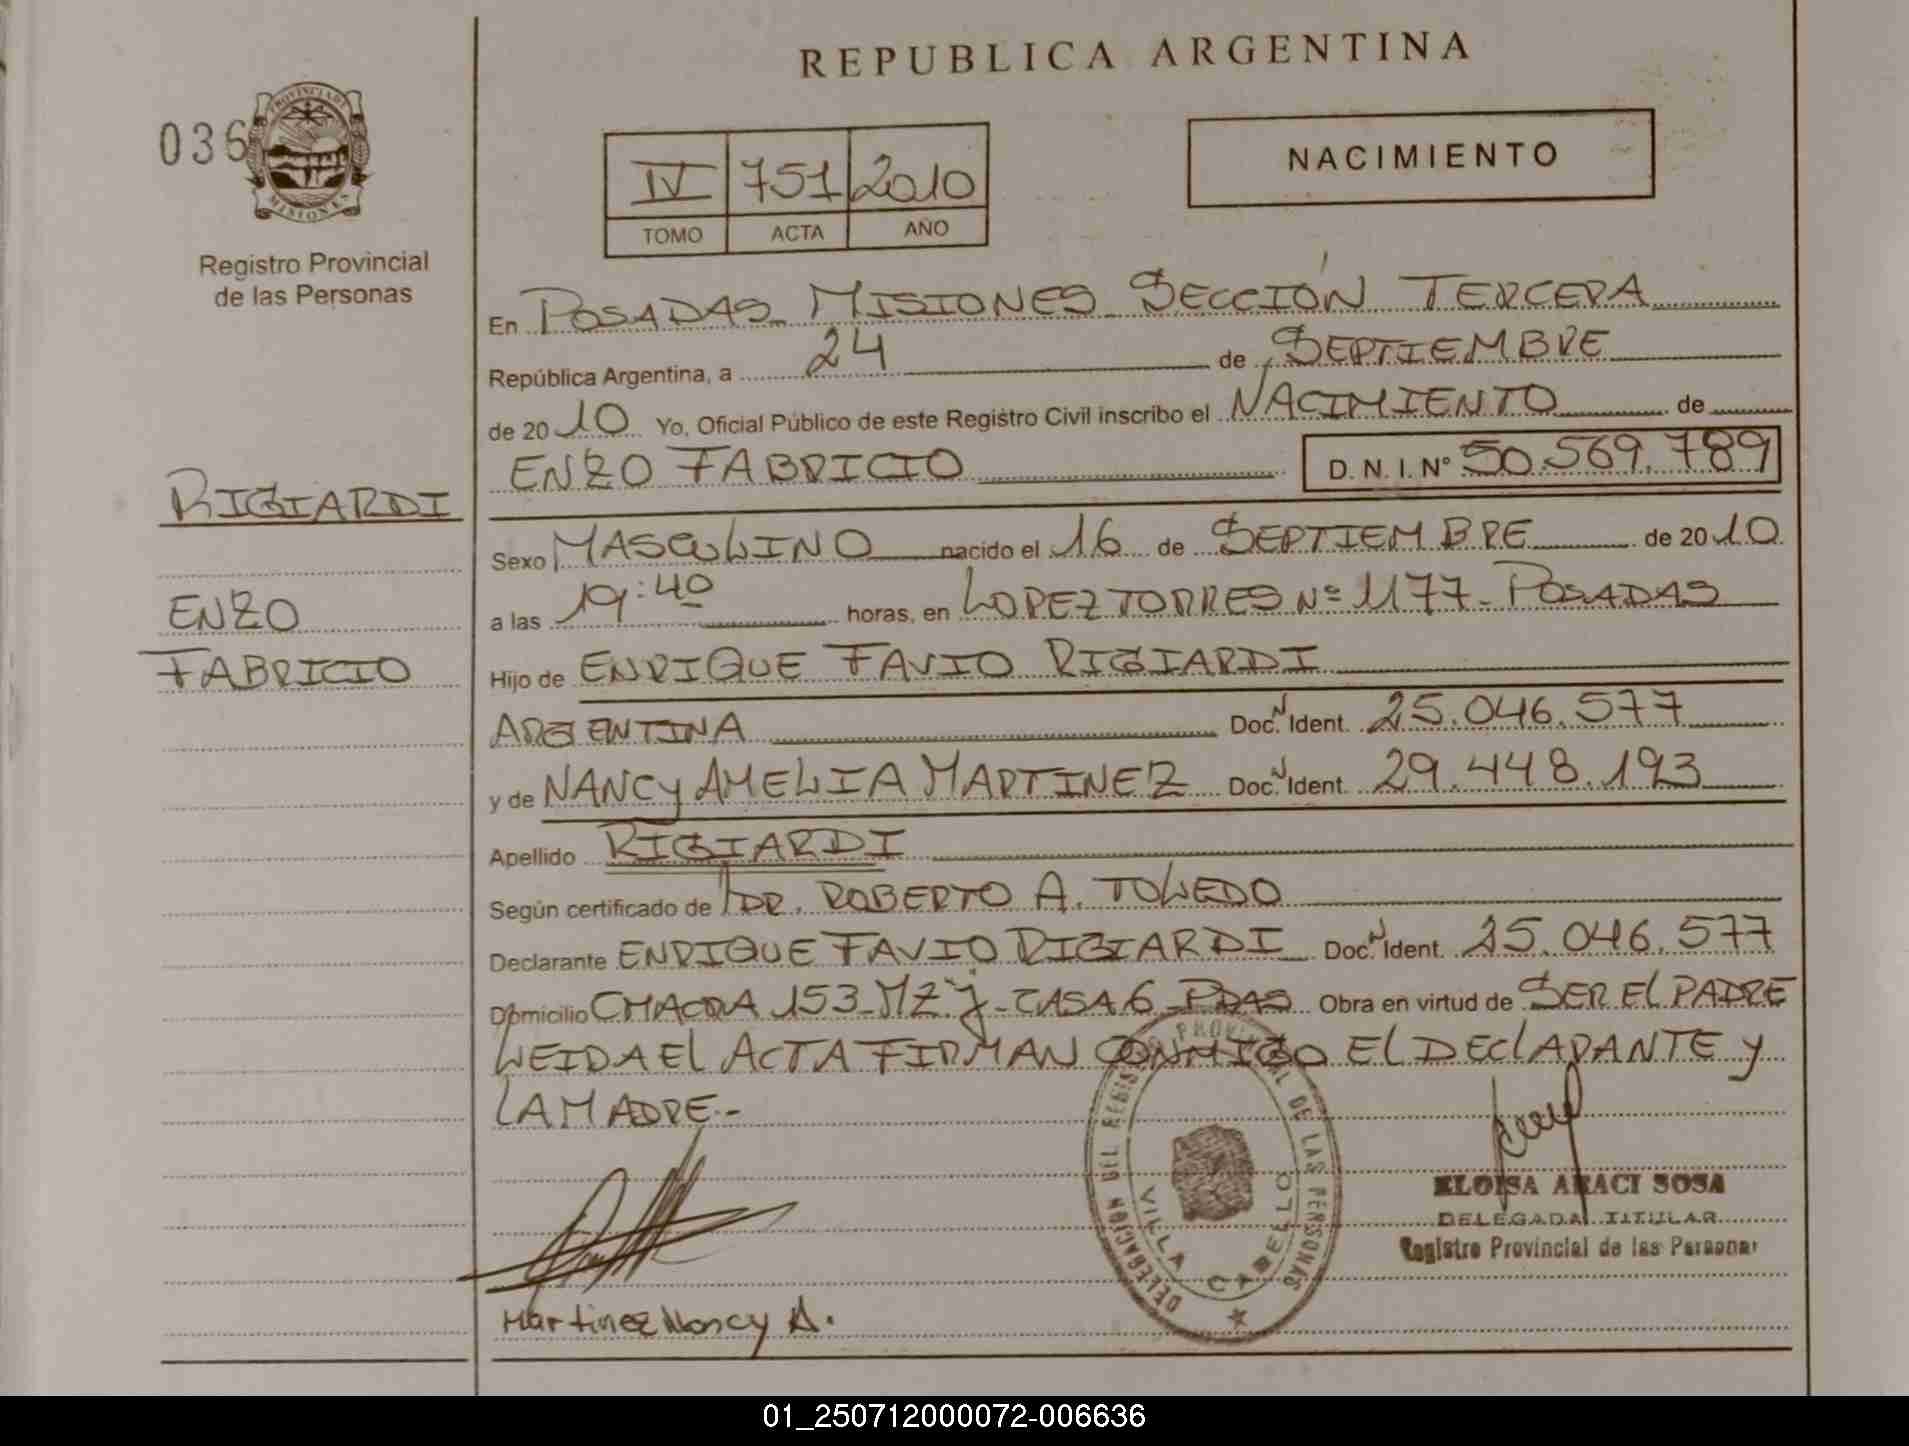 REPUBLICA ARGENTINA
036
PROVINCIA DE MISIONES
Registro Provincial
de las Personas
IV 751 2010
TOMO ACTA AÑO
NACIMIENTO
En POSADAS MISIONES SECCIÓN TERCERA
República Argentina, a 24 de SEPTIEMBRE
de 2010 Yo, Oficial Público de este Registro Civil inscribo el NACIMIENTO de
ENZO FABRICIO D. N. I. Nº 50.569.789
RIGIARDI
ENZO
FABRICIO
Sexo MASCULINO nacido el 16 de SEPTIEMBRE de 2010
a las 19:40 horas, en LOPEZ TORRES Nº 1177 - POSADAS
Hijo de ENRIQUE FAVIO RIGIARDI
ARGENTINA Doc. Ident. 25.046.577
y de NANCY AMELIA MARTINEZ Doc. Ident. 29.448.193
Apellido RIGIARDI
Según certificado de DR. ROBERTO A. TOLEDO
Declarante ENRIQUE FAVIO RIGIARDI Doc. Ident. 25.046.577
Domicilio CHACRA 153 - MZ "J - CASA 6 - PDAS Obra en virtud de SER EL PADRE
LEIDA EL ACTA FIRMAN CONMIGO EL DECLARANTE Y
LA MADRE.-
DELEGACION DEL REGISTRO PROVINCIAL DE LAS PERSONAS
VILLA CABELLO
ELOISA ARACI SOSA
DELEGADA TITULAR
Registro Provincial de las Personas
Martinez Nancy A.
01_250712000072-006636